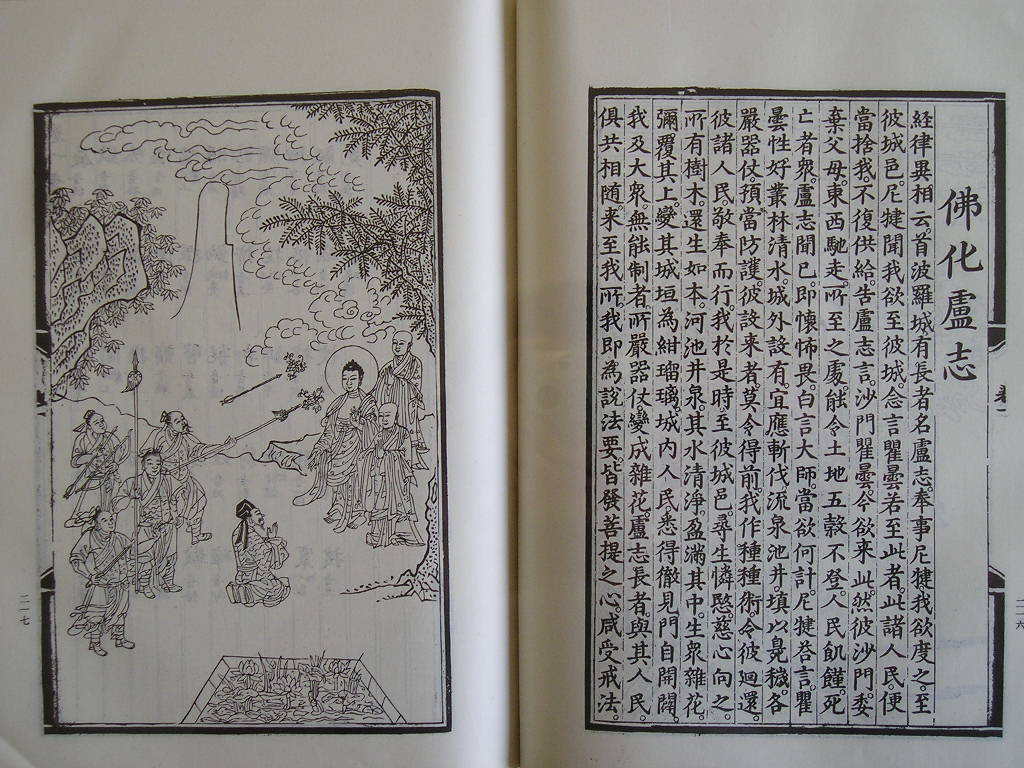 佛化盧志
経律異相云。首波羅城有長者名盧志奉事尼揵我欲度之。至
彼城邑。尼揵聞我欲至彼城。念言瞿曇若至此者。此諸人民。便
當捨我不復供給。告盧志言。沙門瞿曇今欲來此。然彼沙門。委
棄父母。東西馳走。所至之處。能令土地五穀不登。人民飢饉。死
亡者衆。盧志聞已。即懷怖畏。白言大師。當欲何計。尼揵荅言。瞿
曇性好叢林清水。城外設有。宜應斬伐流泉池井。填以臭穢。各
嚴器仗預當防護。彼設來者莫令得前。我作種種術。令彼迴還。
彼諸人民。敬奉而行。我於是時至彼城邑。尋生憐愍慈心向之。
所有樹木。還生如本。河池井泉。其水清淨。盈滿其中。生衆雜花。
彌覆其上。變其城垣為紺瑠璃。城内人民。悉得徹見。門自開闢。
我及大衆。無能制者。所嚴器仗。變成雜花。盧志長者。與其人民。
俱共相随。来至我所。我即為說法要。皆發菩提之心。咸受戒法。
卷一
二一六
二一七